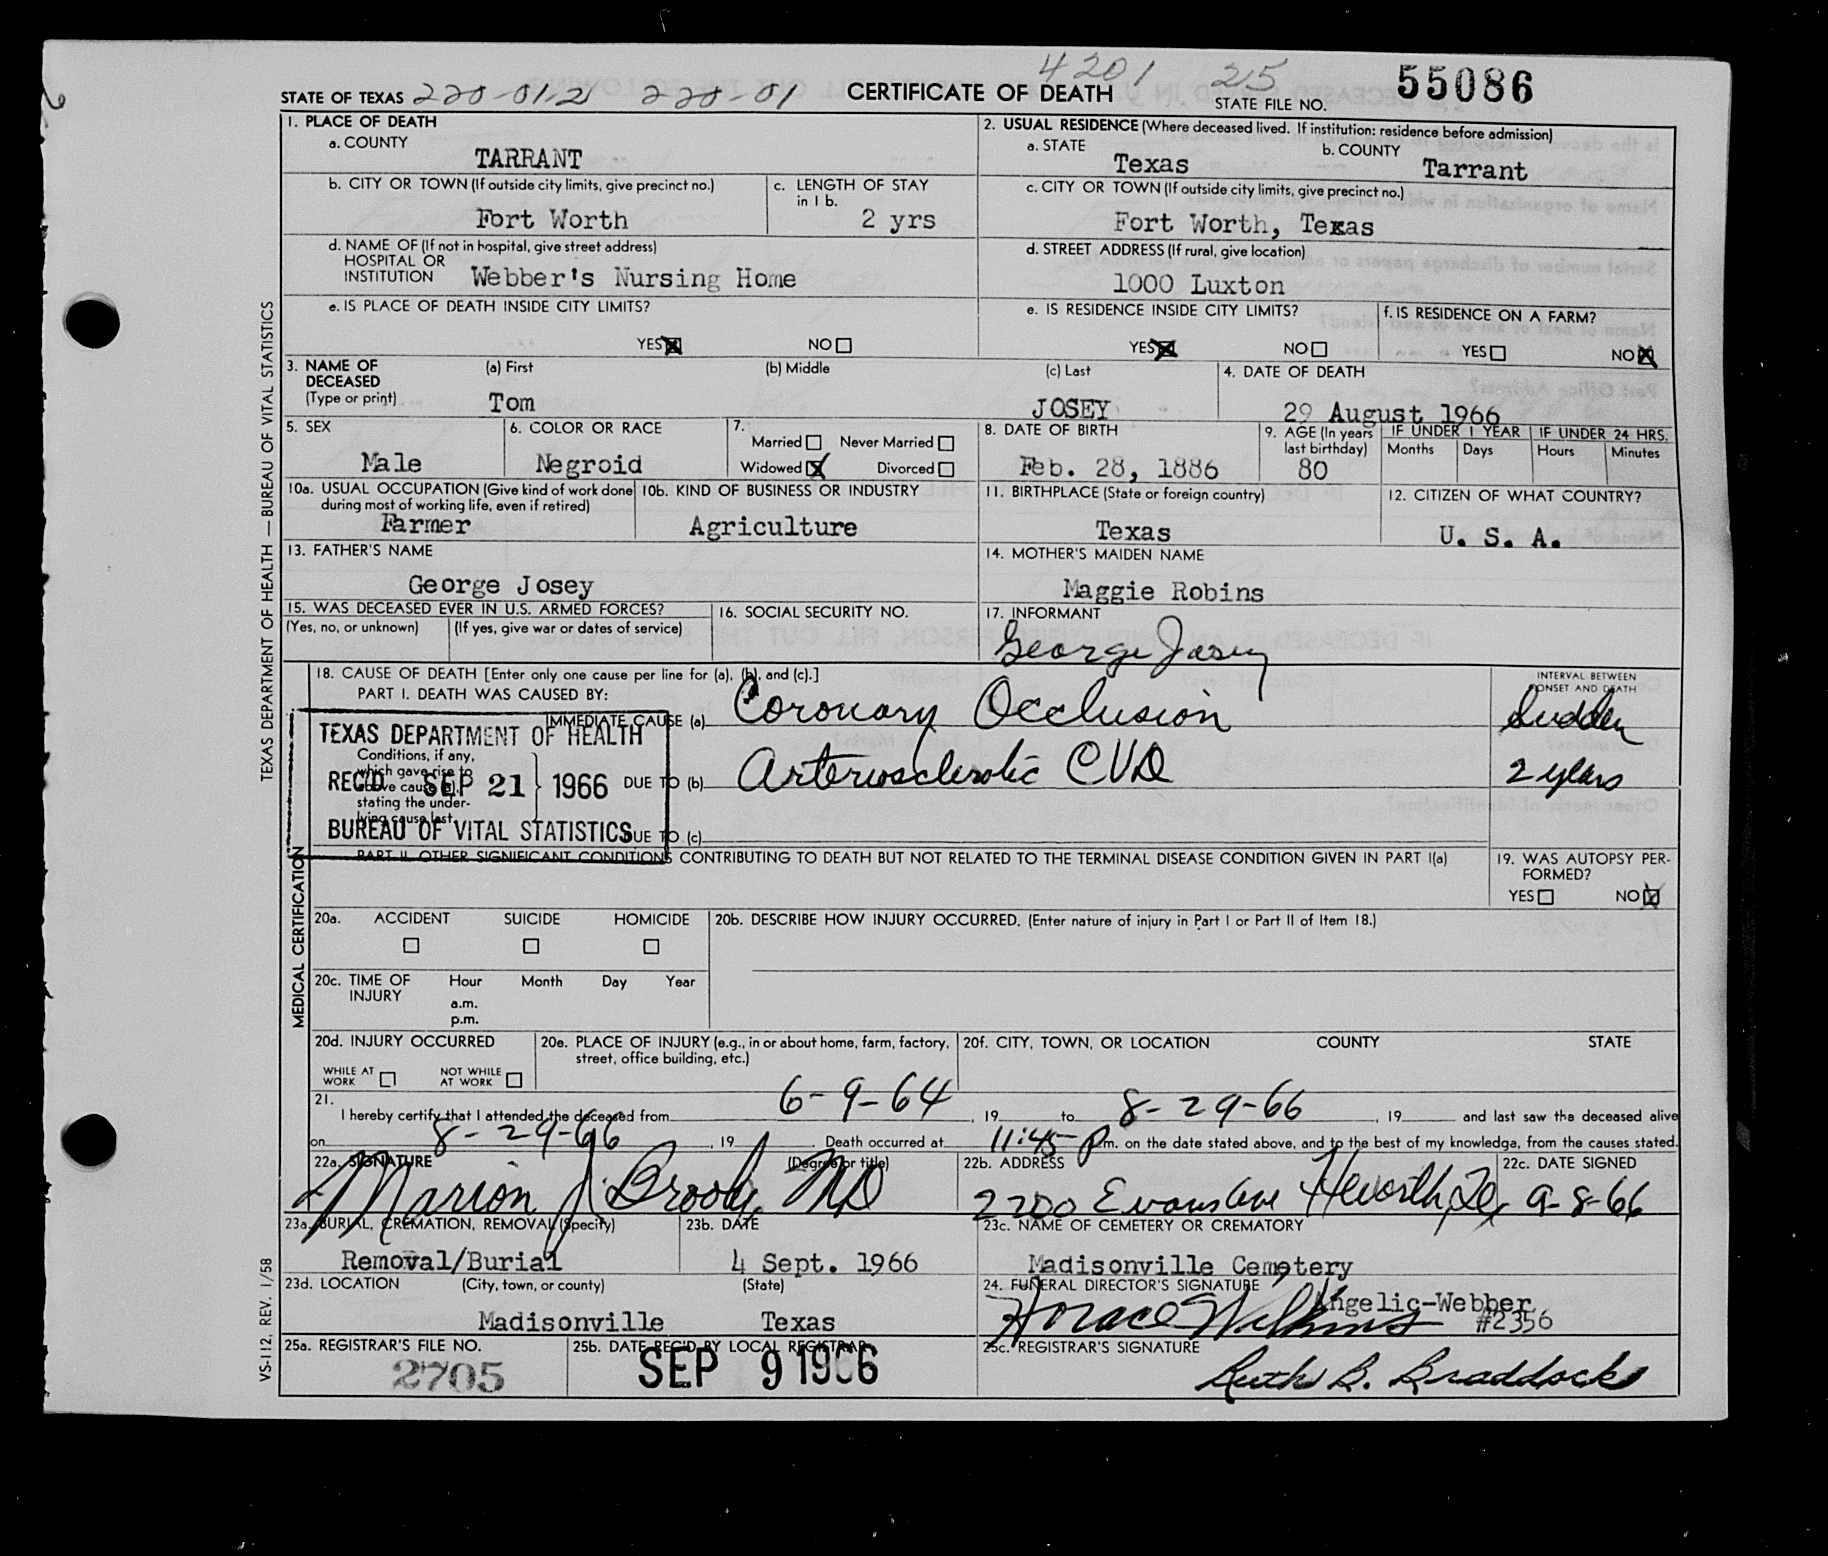 4201 215 55086
STATE OF TEXAS 220-01-21 220-01 CERTIFICATE OF DEATH STATE FILE NO.
1. PLACE OF DEATH
a. COUNTY
TARRANT
2. USUAL RESIDENCE (Where deceased lived. If institution: residence before admission)
a. STATE b. COUNTY
Texas Tarrant
b. CITY OR TOWN (If outside city limits, give precinct no.)
Fort Worth
c. LENGTH OF STAY
in 1 b.
2 yrs
c. CITY OR TOWN (If outside city limits, give precinct no.)
Fort Worth, Texas
d. NAME OF (If not in hospital, give street address)
HOSPITAL OR
INSTITUTION Webber's Nursing Home
d. STREET ADDRESS (If rural, give location)
1000 Luxton
e. IS PLACE OF DEATH INSIDE CITY LIMITS?
YES NO
e. IS RESIDENCE INSIDE CITY LIMITS?
YES NO
f. IS RESIDENCE ON A FARM?
YES NO
3. NAME OF
DECEASED
(Type or print)
(a) First (b) Middle (c) Last
Tom JOSEY
4. DATE OF DEATH
29 August 1966
5. SEX
Male
6. COLOR OR RACE
Negroid
7.
Married Never Married
Widowed Divorced
8. DATE OF BIRTH
Feb. 28, 1886
9. AGE (In years
last birthday)
80
IF UNDER 1 YEAR IF UNDER 24 HRS.
Months Days Hours Minutes
10a. USUAL OCCUPATION (Give kind of work done
during most of working life, even if retired)
Farmer
10b. KIND OF BUSINESS OR INDUSTRY
Agriculture
11. BIRTHPLACE (State or foreign country)
Texas
12. CITIZEN OF WHAT COUNTRY?
U. S. A.
13. FATHER'S NAME
George Josey
14. MOTHER'S MAIDEN NAME
Maggie Robins
15. WAS DECEASED EVER IN U.S. ARMED FORCES?
(Yes, no, or unknown) (If yes, give war or dates of service)
16. SOCIAL SECURITY NO.
17. INFORMANT
George Josey
18. CAUSE OF DEATH [Enter only one cause per line for (a), (b), and (c).]
PART I. DEATH WAS CAUSED BY:
INTERVAL BETWEEN
ONSET AND DEATH
IMMEDIATE CAUSE (a) Coronary Occlusion Sudden
Conditions, if any,
which gave rise to
above cause (a),
stating the under-
lying cause last.
DUE TO (b) Arteriosclerotic CVD 2 years
DUE TO (c)
TEXAS DEPARTMENT OF HEALTH
REC'D SEP 21 1966
BUREAU OF VITAL STATISTICS
PART II. OTHER SIGNIFICANT CONDITIONS CONTRIBUTING TO DEATH BUT NOT RELATED TO THE TERMINAL DISEASE CONDITION GIVEN IN PART I(a)
19. WAS AUTOPSY PER-
FORMED?
YES NO
20a. ACCIDENT SUICIDE HOMICIDE
20b. DESCRIBE HOW INJURY OCCURRED. (Enter nature of injury in Part I or Part II of Item 18.)
20c. TIME OF
INJURY
Hour Month Day Year
a.m.
p.m.
20d. INJURY OCCURRED
WHILE AT
WORK
NOT WHILE
AT WORK
20e. PLACE OF INJURY (e.g., in or about home, farm, factory,
street, office building, etc.)
20f. CITY, TOWN, OR LOCATION COUNTY STATE
21.
I hereby certify that I attended the deceased from 6-9-64, 19 to 8-29-66, 19 and last saw the deceased alive
on 8-29-66, 19. Death occurred at 11:45 Pm. on the date stated above, and to the best of my knowledge, from the causes stated.
22a. SIGNATURE (Degree or title)
Marion J. Brooks MD
22b. ADDRESS
2200 Evans Ave Ftworth, Tex
22c. DATE SIGNED
9-8-66
23a. BURIAL, CREMATION, REMOVAL (Specify)
Removal/Burial
23b. DATE
4 Sept. 1966
23c. NAME OF CEMETERY OR CREMATORY
Madisonville Cemetery
23d. LOCATION (City, town, or county) (State)
Madisonville Texas
24. FUNERAL DIRECTOR'S SIGNATURE
Angelic-Webber
Horace Wilkins #2356
25a. REGISTRAR'S FILE NO.
2705
25b. DATE REC'D BY LOCAL REGISTRAR
SEP 9 1966
25c. REGISTRAR'S SIGNATURE
Ruth B. Braddock
TEXAS DEPARTMENT OF HEALTH — BUREAU OF VITAL STATISTICS
MEDICAL CERTIFICATION
VS-112, REV. 1/58